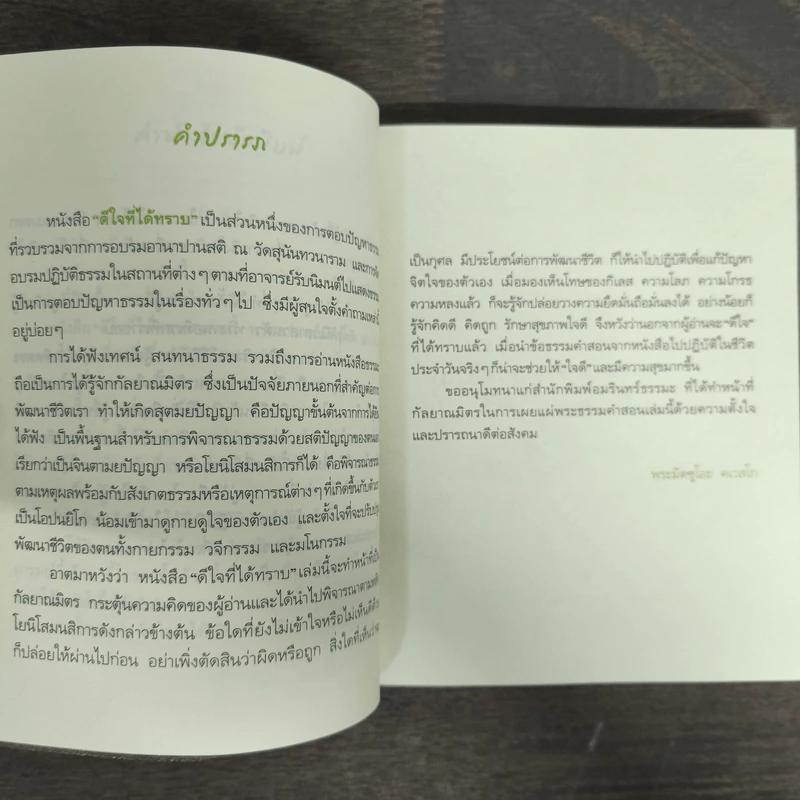 คำปรารภ
หนังสือ “ดีใจที่ได้ทราบ” เป็นส่วนหนึ่งของการตอบปัญหาธรรม
ที่รวบรวมจากการอบรมอานาปานสติ ณ วัดสุนันทวนาราม และการ
อบรมปฏิบัติธรรมในสถานที่ต่างๆ ตามที่อาจารย์รับนิมนต์ไปแสดงธรรม
เป็นการตอบปัญหาธรรมในเรื่องทั่วๆ ไป ซึ่งมีผู้สนใจตั้งคำถามเหล่านี้
อยู่บ่อยๆ
การได้ฟังเทศน์ สนทนาธรรม รวมถึงการอ่านหนังสือธรรมะ
ถือเป็นการได้รู้จักกัลยาณมิตร ซึ่งเป็นปัจจัยภายนอกที่สำคัญต่อการ
พัฒนาชีวิตเรา ทำให้เกิดสุตมยปัญญา คือปัญญาขั้นต้นจากการ
ได้ฟัง เป็นพื้นฐานสำหรับการพิจารณาธรรมด้วยสติปัญญาของตนเอง
เรียกว่าเป็นจินตามยปัญญา หรือโยนิโสมนสิการก็ได้ คือพิจารณาธรรม
ตามเหตุผลพร้อมกับสังเกตธรรมหรือเหตุการณ์ต่างๆ ที่เกิดขึ้นกับ
เป็นโอปนยิโก น้อมเข้ามาดูกายดูใจของตัวเอง และตั้งใจที่จะปรับปรุง
พัฒนาชีวิตของตนทั้งกายกรรม วจีกรรม และมโนกรรม
อาตมาหวังว่า หนังสือ “ดีใจที่ได้ทราบ” เล่มนี้จะทำหน้าที่เป็น
กัลยาณมิตร กระตุ้นความคิดของผู้อ่านและได้นำไปพิจารณาตามหลัก
โยนิโสมนสิการดังกล่าวข้างต้น ข้อใดที่ยังไม่เข้าใจหรือไม่เห็นดีด้วย
ก็ปล่อยให้ผ่านไปก่อน อย่าเพิ่งตัดสินว่าผิดหรือถูก สิ่งใดที่เห็นว่า
เป็นกุศล มีประโยชน์ต่อการพัฒนาชีวิต ก็ให้นำไปปฏิบัติเพื่อแก้ปัญหา
จิตใจของตัวเอง เมื่อมองเห็นโทษของกิเลส ความโลภ ความโกรธ
ความหลงแล้ว ก็จะรู้จักปล่อยวางความยึดมั่นถือมั่นลงได้ อย่างน้อยก็
รู้จักคิดดี คิดถูก รักษาสุขภาพใจดี จึงหวังว่านอกจากผู้อ่านจะ “ดีใจ”
ที่ได้ทราบแล้ว เมื่อนำข้อธรรมคำสอนจากหนังสือไปปฏิบัติในชีวิต
ประจำวันจริงๆ ก็น่าจะช่วยให้ “ใจดี” และมีความสุขมากขึ้น
ขออนุโมทนาแก่สำนักพิมพ์อมรินทร์ธรรมะ ที่ได้ทำหน้าที่
กัลยาณมิตรในการเผยแผ่พระธรรมคำสอนเล่มนี้ด้วยความตั้งใจ
และปรารถนาดีต่อสังคม
พระมิตซูโอะ คเวสโก